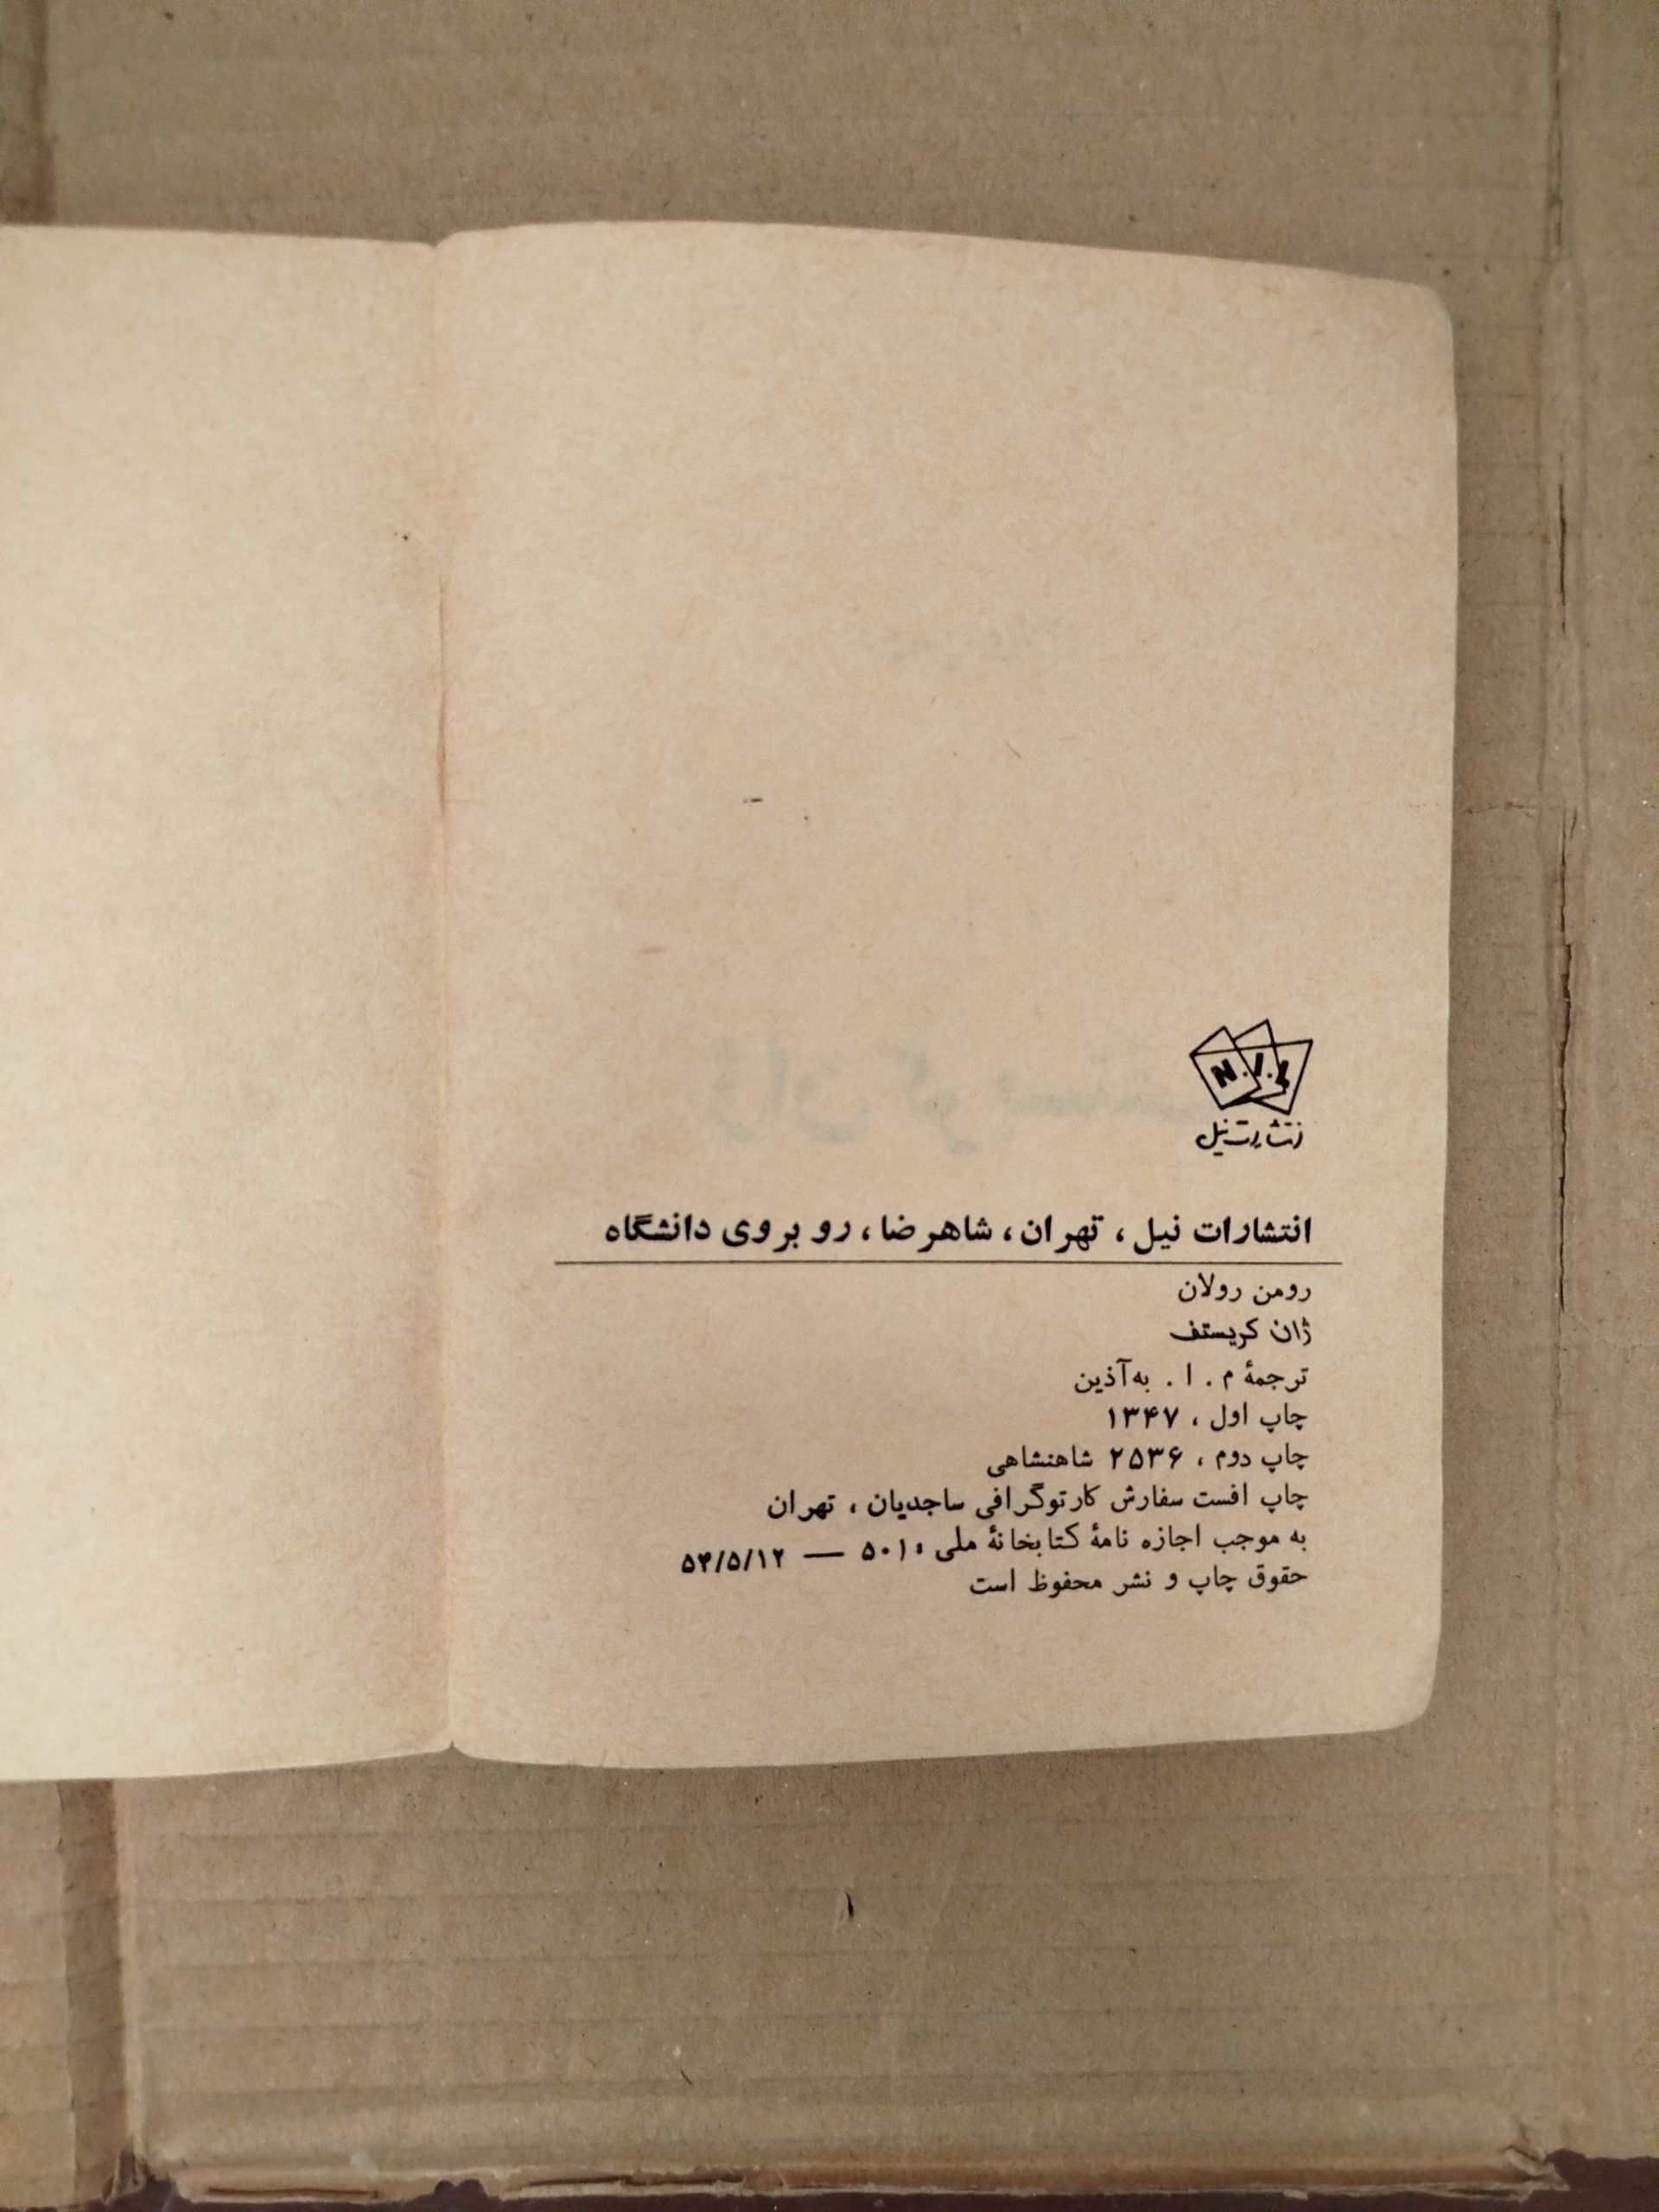 N.I.L
انتشارات نیل
انتشارات نیل ، تهران ، شاهرضا ، روبروی دانشگاه
رومن رولان
ژان کریستف
ترجمهٔ م . ا . به‌آذین
چاپ اول ، ۱۳۴۷
چاپ دوم ، ۲۵۳۶ شاهنشاهی
چاپ افست سفارش کارتوگرافی ساجدیان ، تهران
به موجب اجازه نامهٔ کتابخانهٔ ملی ۵۰۱ — ۵۴/۵/۱۲
حقوق چاپ و نشر محفوظ است